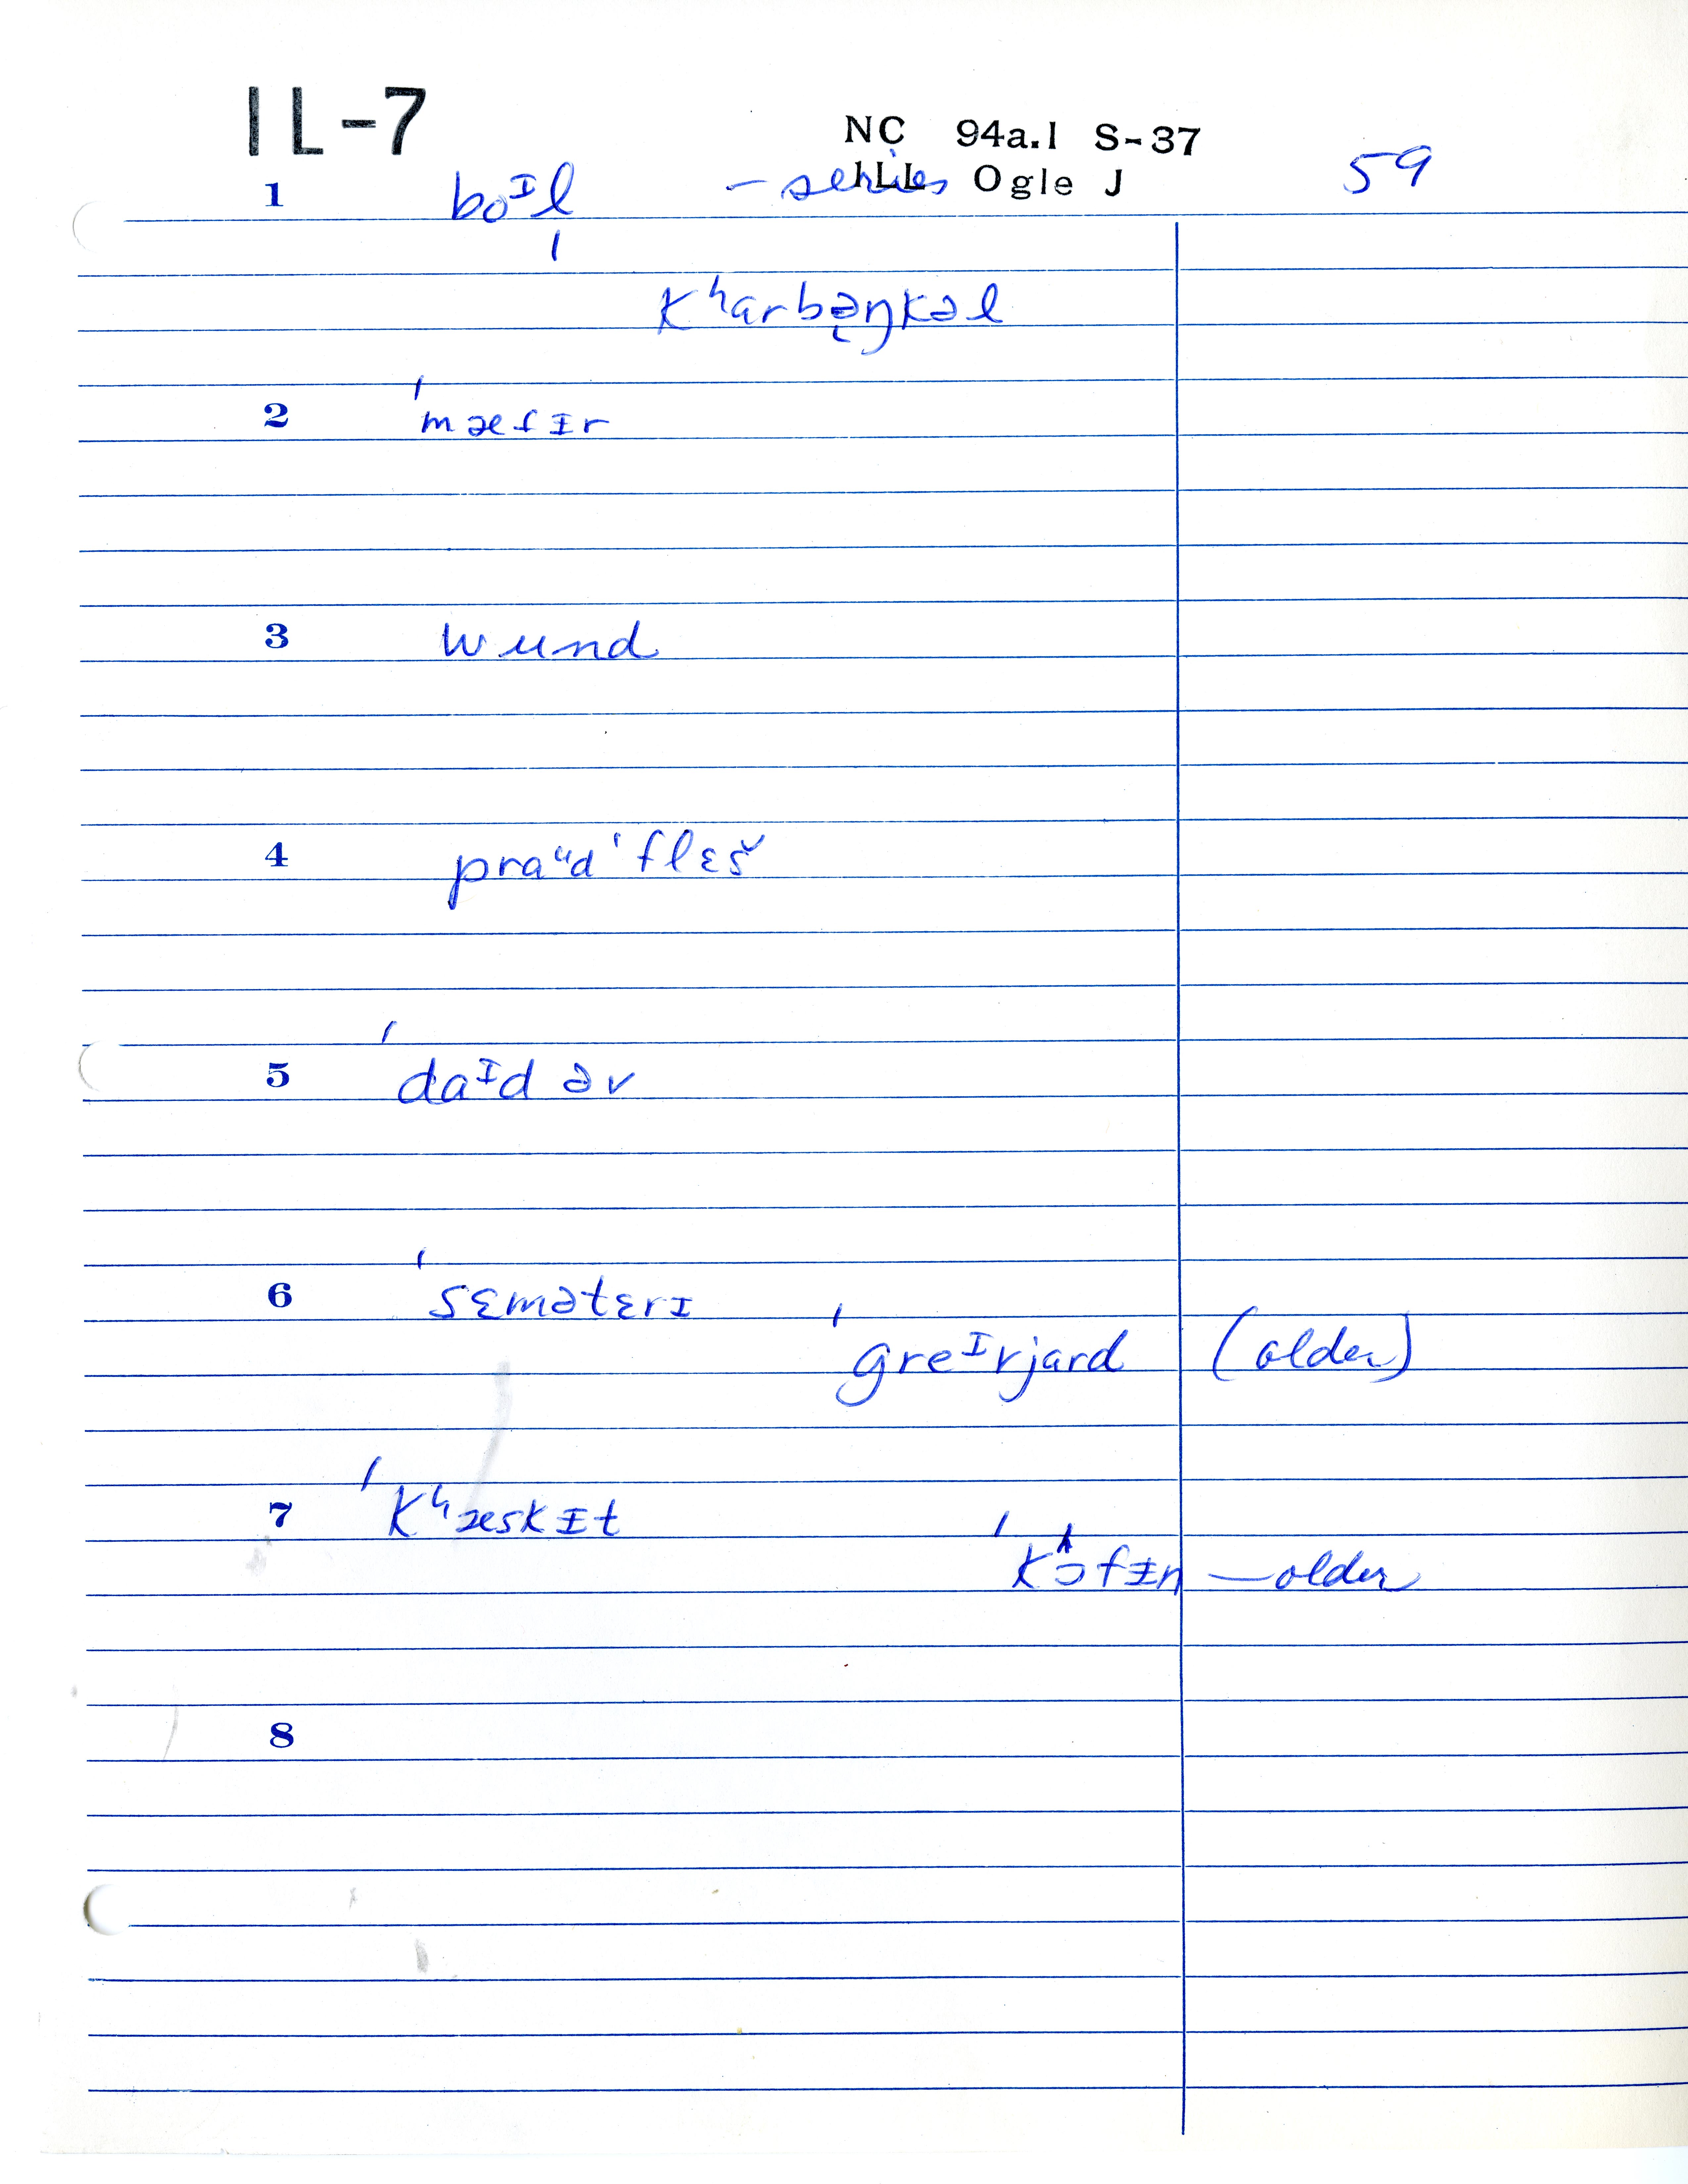 IL-7
NC 94a.1 S-37
ILL Ogle J
59
1 boᴵl – series
ˈkʰarbəŋkəl
2 ˈmætᵻr
3 wund
4 praᵘd ˈflɛš
5 ˈdaᴵd əv
6 ˈsɛmətɛrɪ
ˈgreᴵvjard (older)
7 ˈkʰæskᵻt
ˈkɔfᵻn — older
8